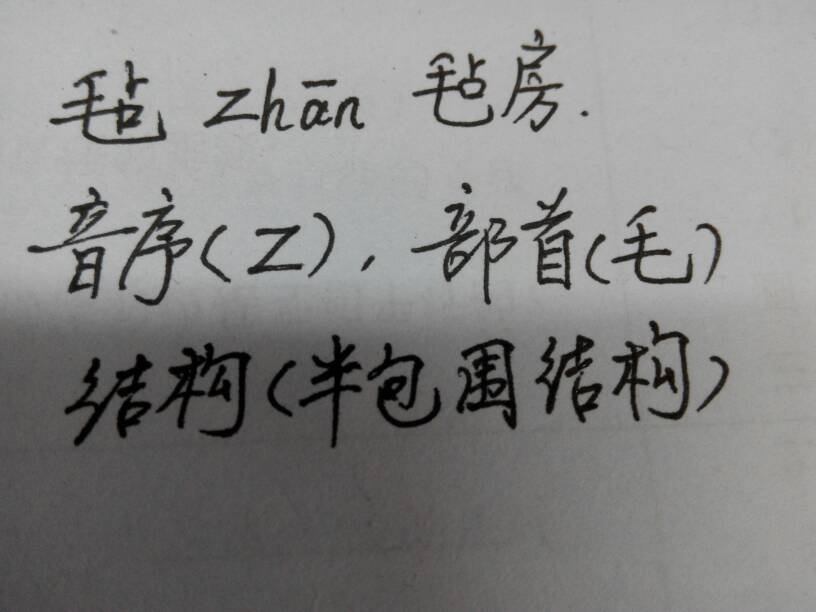 毡 Zhān 毡房.
音序(Z),部首(毛)
结构(半包围结构)